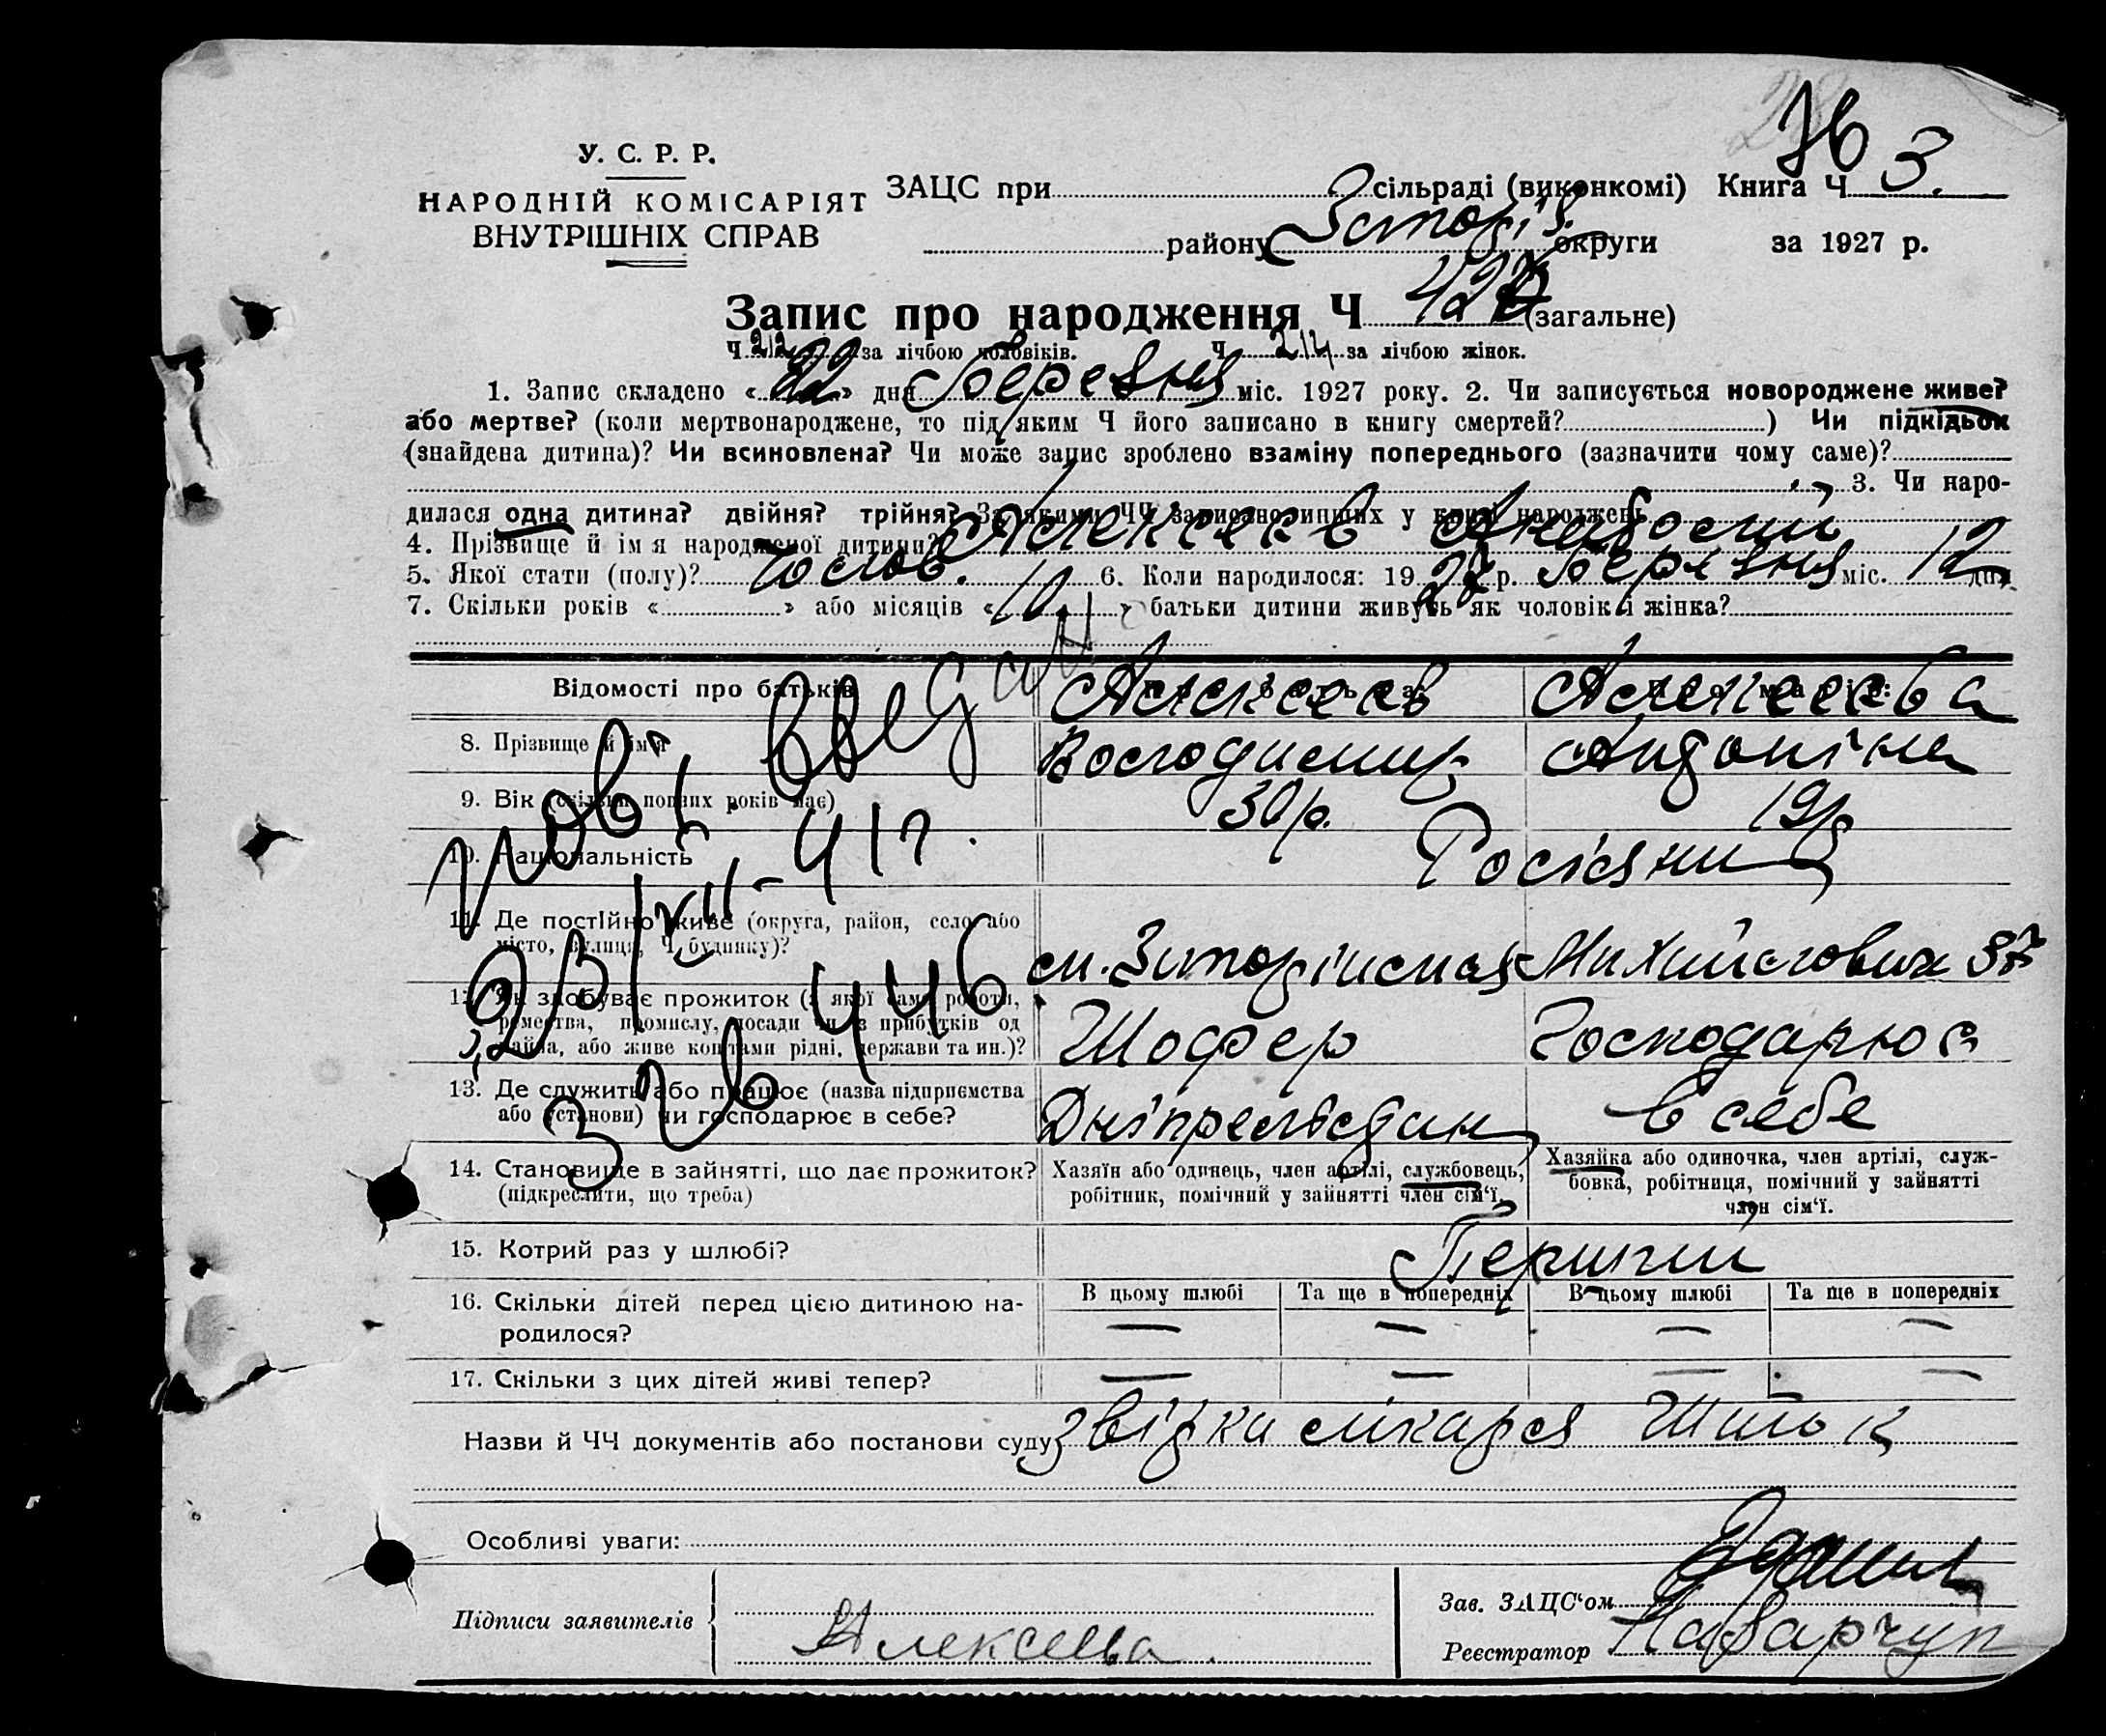 У. С. Р. Р.
НАРОДНІЙ КОМІСАРІЯТ
ВНУТРІШНІХ СПРАВ
ЗАЦС при сільраді (виконкомі) Книга Ч 3.
району округи за 1927 р.
Запис про народження Ч (загальне)
Ч 212 за лічбою чоловіків. Ч за лічбою жінок.
1. Запис складено «22» дня Березня міс. 1927 року. 2. Чи записується новороджене живе?
або мертве? (коли мертвонароджене, то під яким Ч його записано в книгу смертей? ) Чи підкідьок
(знайдена дитина)? Чи всиновлена? Чи може запис зроблено взаміну попереднього (зазначити чому саме)?
3. Чи наро-
дилася одна дитина? двійня? трійня? За якими ЧЧ записано инших у книзі народжень
4. Прізвище й ім я народженої дитини? Алексєєв
5. Якої стати (полу)? чолов. 6. Коли народилося: 1927 р. Березня міс. 12 дня
7. Скільки років « » або місяців «10» батьки дитини живуть як чоловік і жінка?
Відомості про батьків
Алексєєв Алексєєва
8. Прізвище й ім'я Володимир Андоніна
9. Вік (скільки повних років має) 30 р. 19 р.
10. Національність Росіяни
11. Де постійно живе (округа, район, село або
місто, вулиця, Ч будинку)? Михайлович 37
12. Як здобуває прожиток (з якої саме роботи,
ремества, промислу, посади чи з прибутків од
майна, або живе коштами рідні, держави та ин.)? Шофер Господарює
13. Де служить або працює (назва підприємства
або установи) чи господарює в себе? в себе
14. Становище в зайнятті, що дає прожиток?
(підкреслити, що треба)
Хазяїн або одинець, член артілі, службовець,
робітник, помічний у зайнятті член сім'ї.
Хазяйка або одиночка, член артілі, служ-
бовка, робітниця, помічний у зайнятті
член сім'ї.
15. Котрий раз у шлюбі? Перший
16. Скільки дітей перед цією дитиною на-
родилося?
В цьому шлюбі Та ще в попередніх В цьому шлюбі Та ще в попередніх
— — — —
17. Скільки з цих дітей живі тепер? — — — —
Назви й ЧЧ документів або постанови суду звідка лікаря
Особливі уваги:
Підписи заявителів Алексеева
Зав. ЗАЦС'ом
Реєстратор